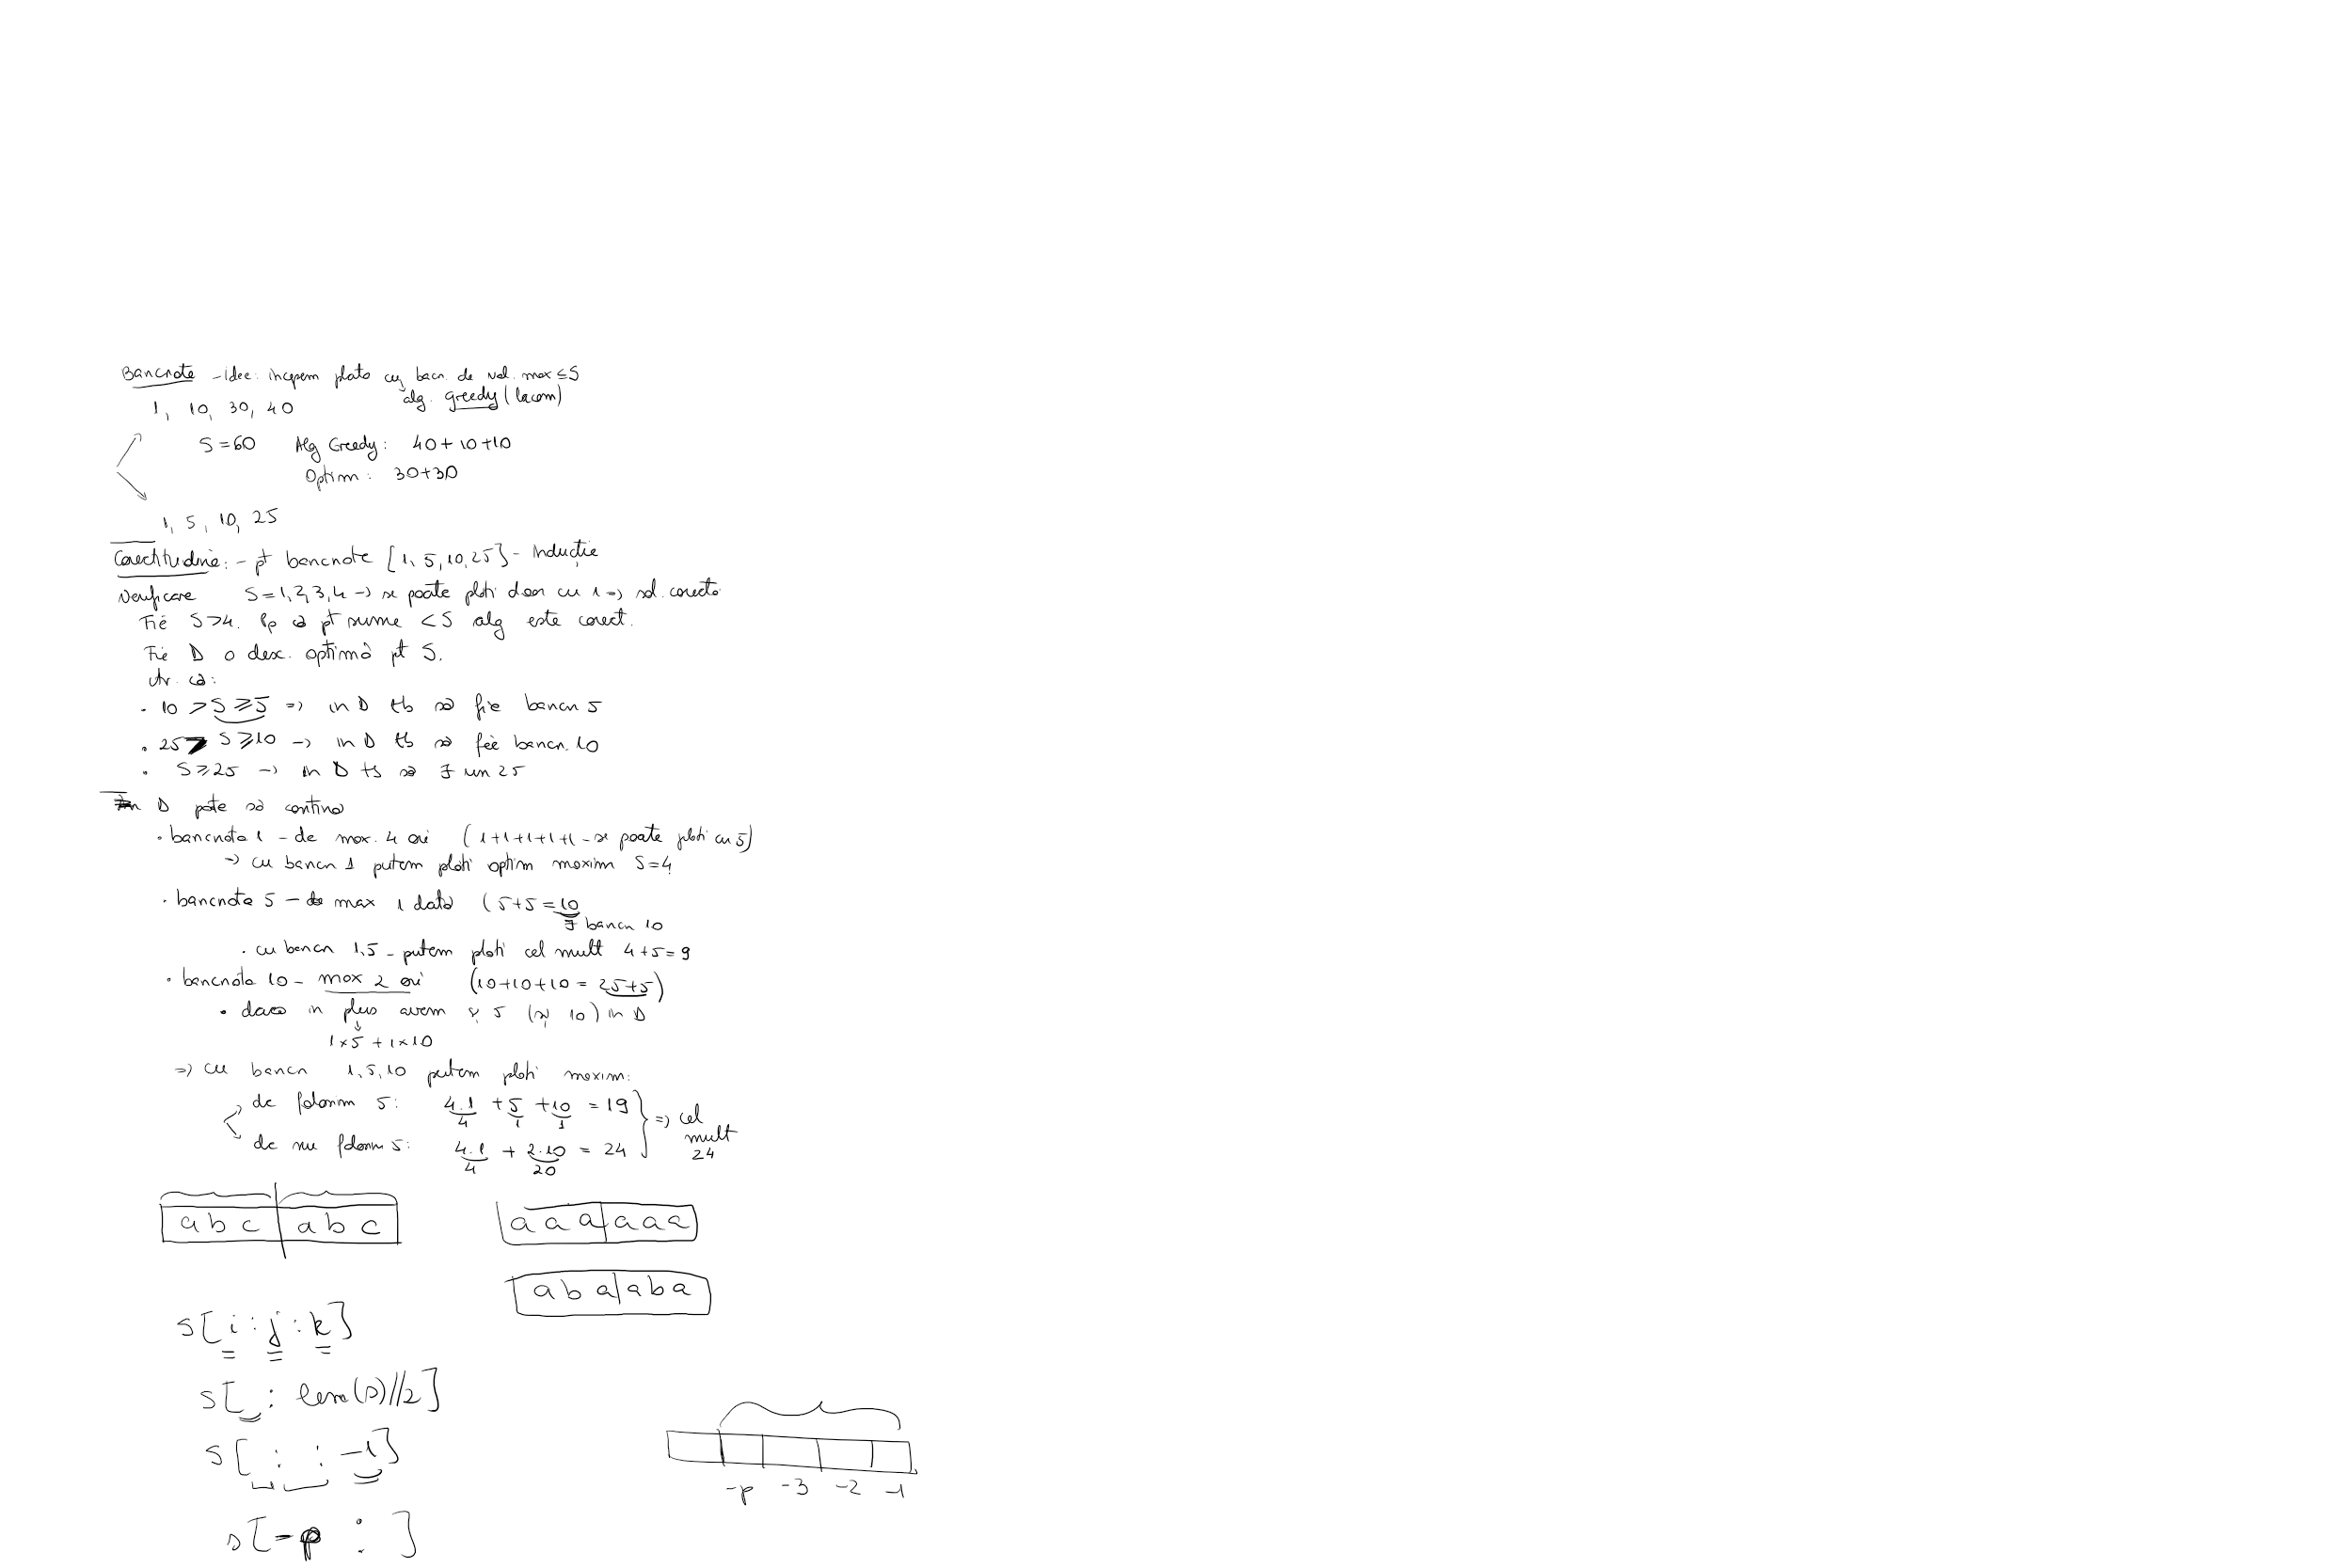 Bancnote - Idee: incepem plata cu bacn. de val. max ≤ S
alg. greedy (lacom)
1, 10, 30, 40
S = 60 Alg Greedy: 40 + 10 + 10
Optim: 30+30
1, 5, 10, 25
Corectitudine: - pt bancnote [1, 5, 10, 25] - Inducție
Verificare S = 1, 2, 3, 4 -> se poate plăti doar cu 1 => sol. corectă
Fie S > 4. Pp că pt sume < S alg este corect.
Fie D o desc. optimă pt S.
Ar. că:
• 10 > S ≥ 5 => in D tb să fie bancn 5
• 25 > S ≥ 10 -> in D tb să fie bancn. 10
• S ≥ 25 -> in D tb să ∃ un 25
D poate să contină
• bancnota 1 - de max. 4 ori (1+1+1+1+1 - se poate plăti cu 5)
=> cu bancn 1 putem plăti optim maxim S = 4
• bancnota 5 - de max 1 dată (5+5 = 10
∃ bancn 10
• cu bancn 1,5 - putem plăti cel mult 4+5 = 9
• bancnota 10 - max 2 ori (10+10+10 = 25+5)
• daca in plus avem și 5 (și 10) in D
1×5 + 1×10
=> cu bancn 1, 5, 10 putem plăti maxim:
de folosim 5: 4.1 + 5 + 10 = 19 } => cel
4 1 1
mult
de nu folosim 5: 4.1 + 2.10 = 24
24
4 20
a b c | a b c
a a a | a a a
a b a | a b a
s[ i : j : k ]
s[ : len(s)//2 ]
s[ : : -1 ]
-p -3 -2 -1
s[ -p : ]